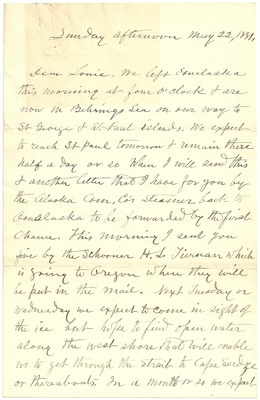 Sunday afternoon May 22, 1881.
Dear Louie, We left Oonalaska
this morning at four o'clock & are
now in Behrings Sea on our way to
St George & St. Paul islands. We expect
to reach St Paul tomorrow & remain there
half a day or so when I will send this
& another letter that I have for you by
the Alaska Com, Co's steamer back to
Oonalaska to be forwarded by the first
chance. This morning I sent you
five by the Schooner H. L. Tiernan which
is going to Oregon where they will
be put in the mail. Next Tuesday or
Wednesday we expect to come in sight of
the ice but hope to find open water
along the west shore that will enable
us to get through the Strait to Cape Serdze
or thereabouts. In a month or so we expect